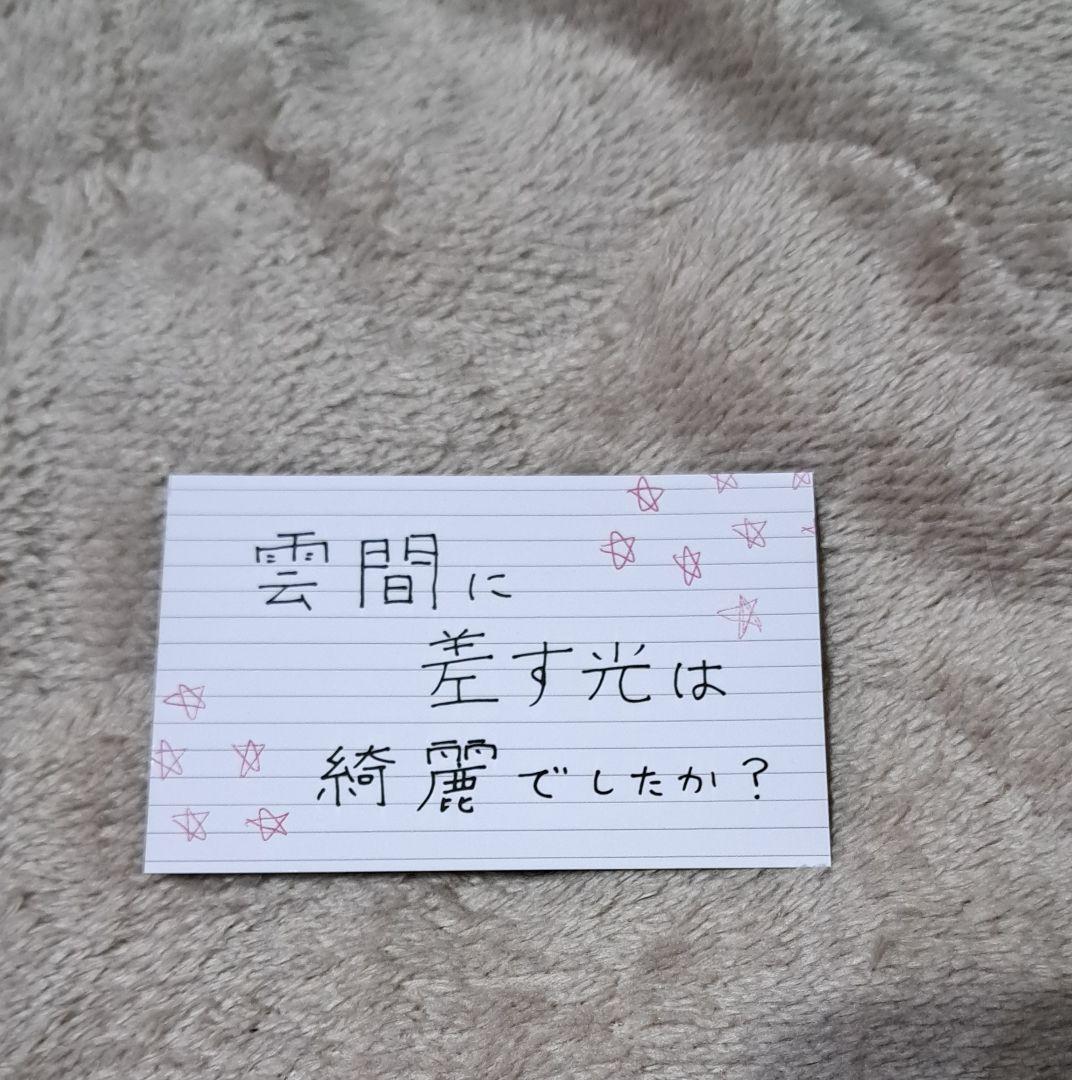 雲間に
差す光は
綺麗でしたか？